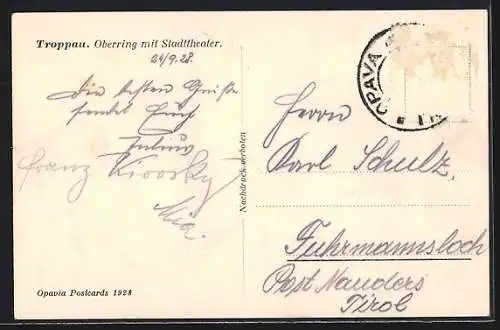 Troppau. Oberring mit Stadttheater.
24/9.28.
Die besten Grüße
sendet Euch
Franz
Mia.
Nachdruck verboten
OPAVA
Herrn
Karl Schulz
Fuhrmannsloch
Post Nauders
Tirol
Opavia Postcards 1928